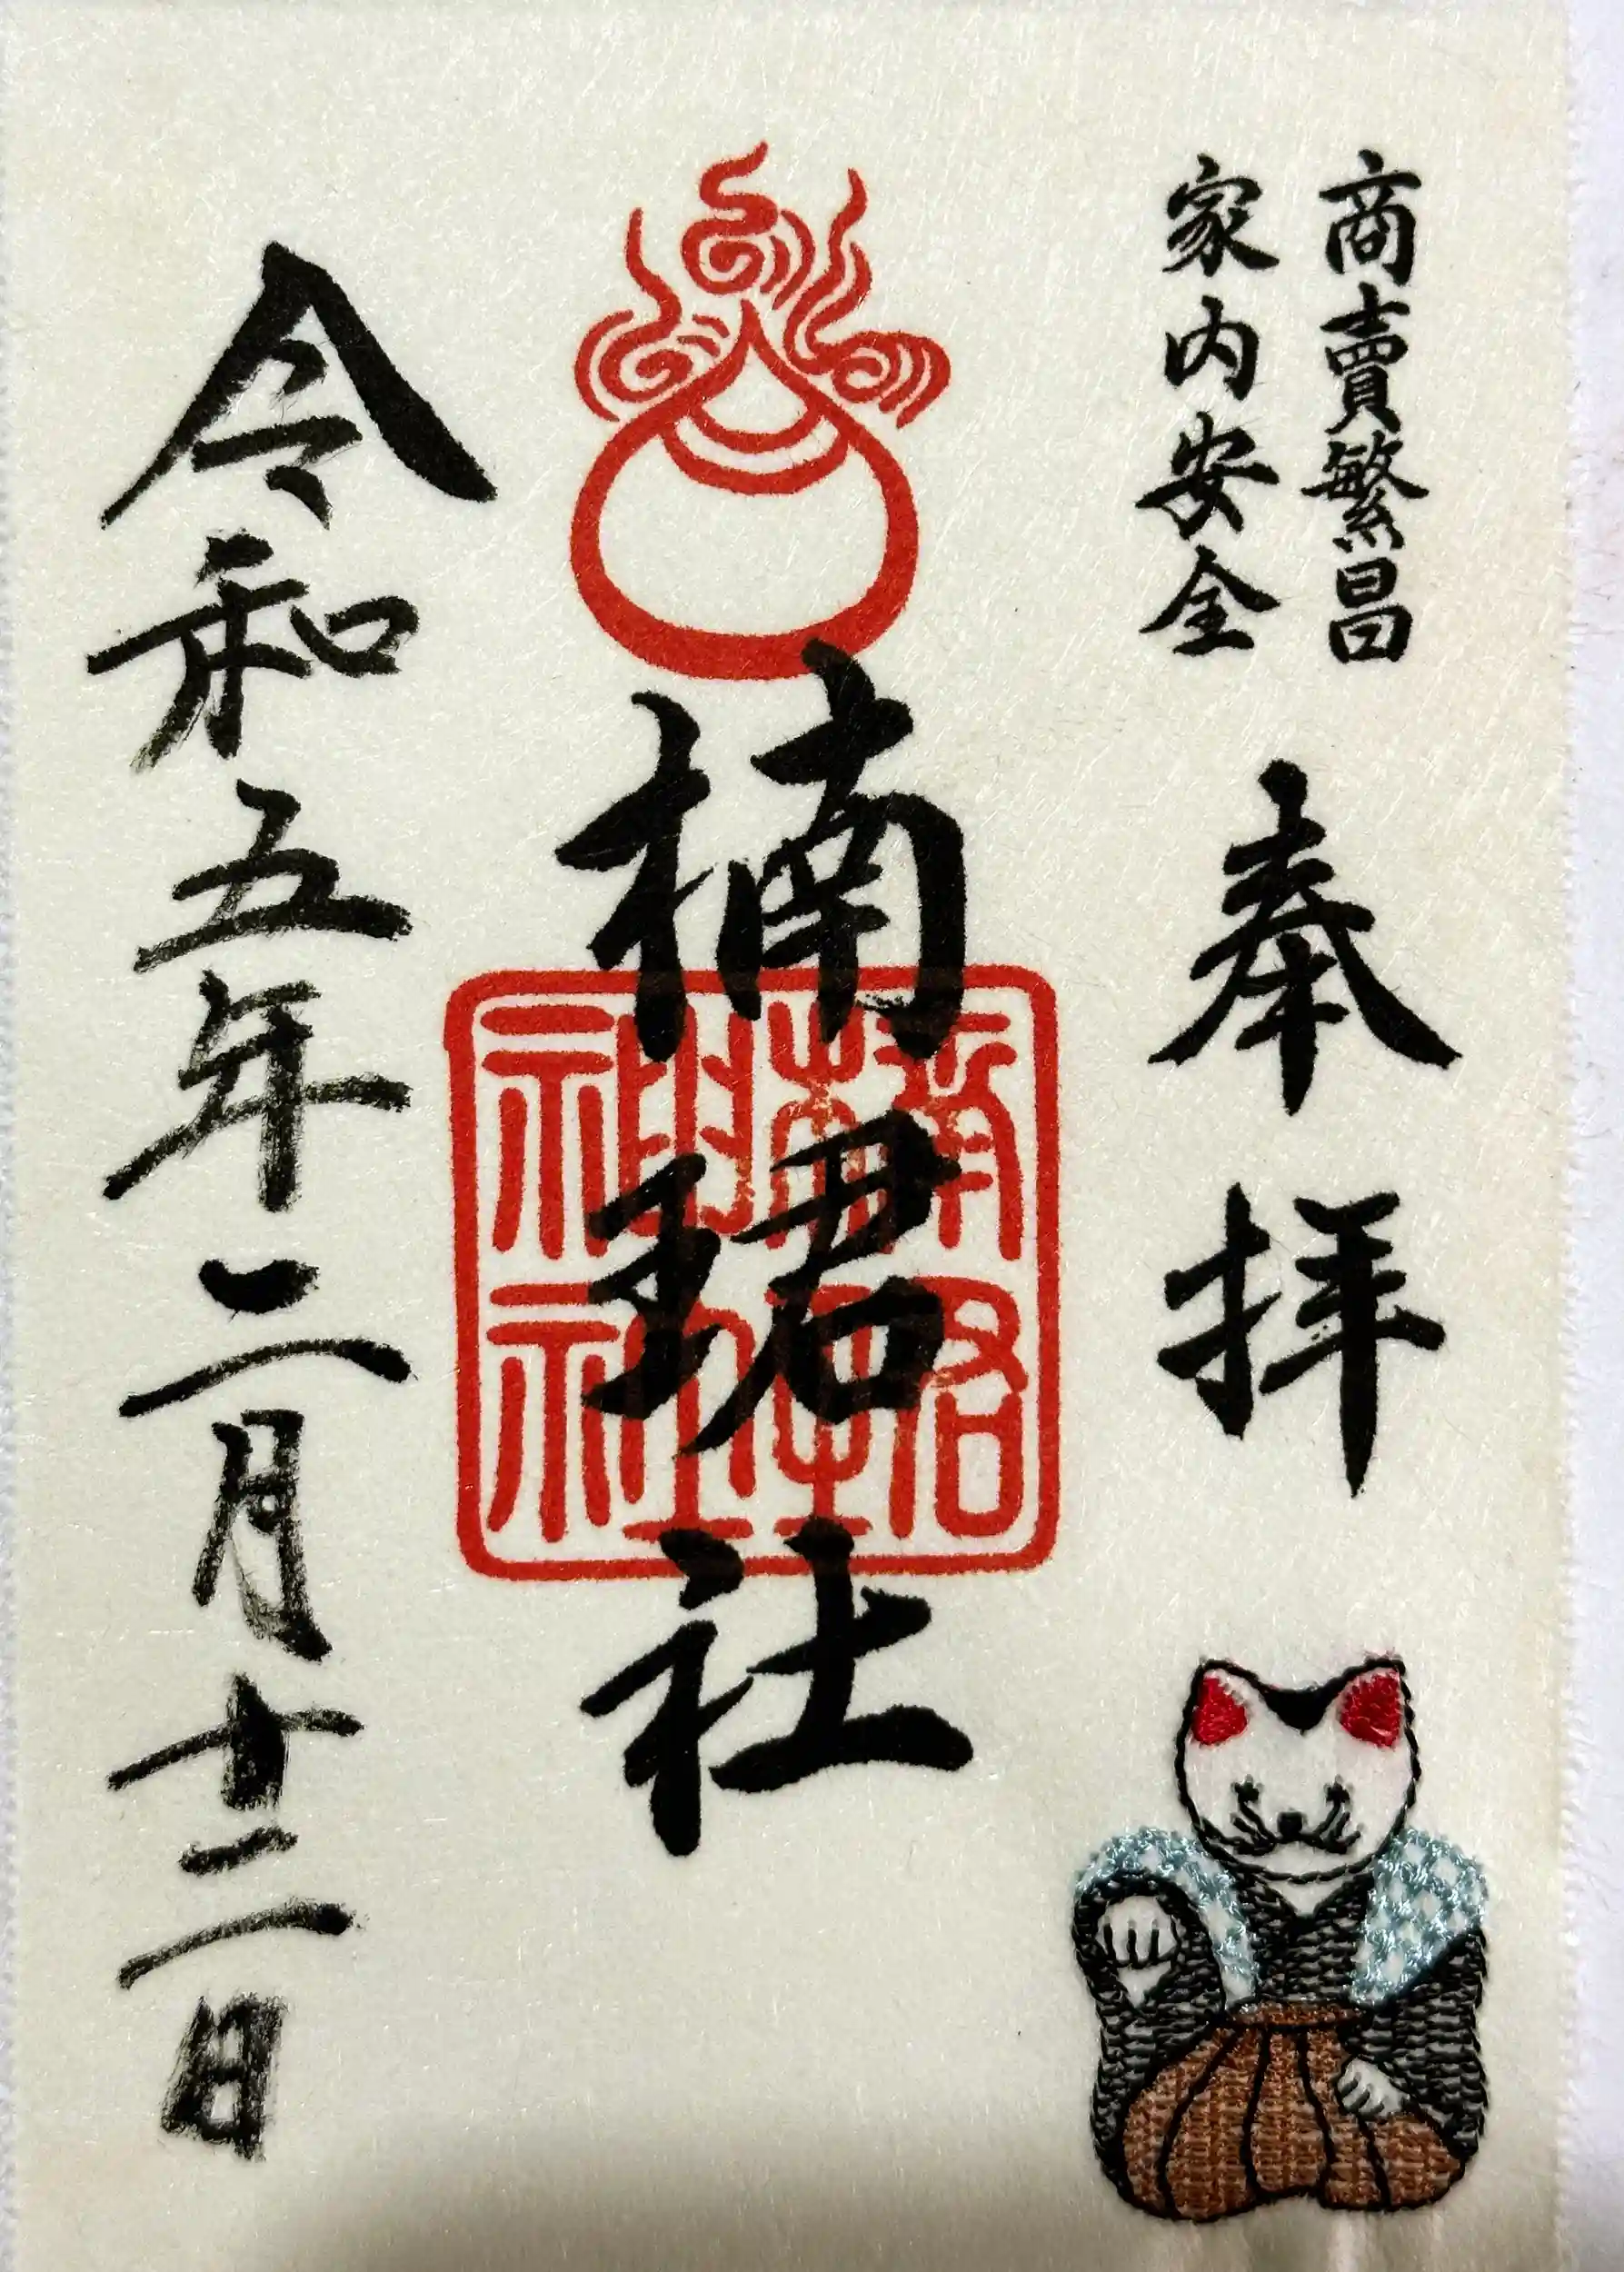 商賣繁昌
家内安全
奉拝
楠珺社
楠珺神社
令和五年二月十二日